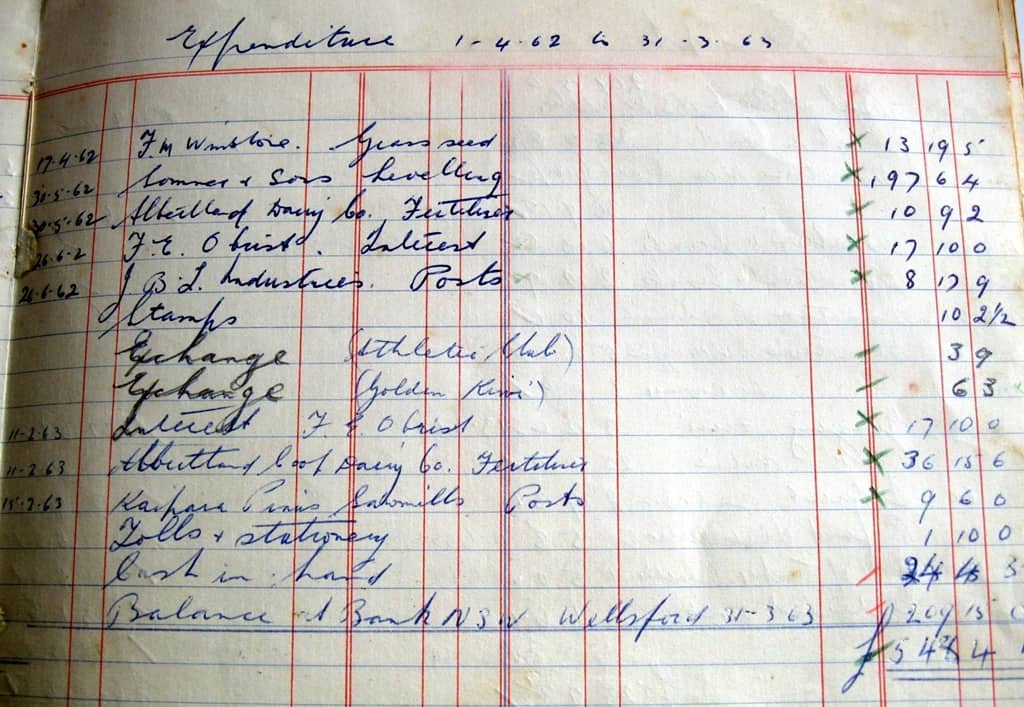 Expenditure 1-4-62 to 31-3-63
17-4-62 F.M Winstone. Grass seed 13 19 5
30-5-62 & Sons Levelling 197 6 4
30-5-62 Albertland Dairy Co. Fertiliser 10 9 2
26-6-2 F. E. Obrist. Interest 17 10 0
26-6-62 J B. L. Industries. Posts 8 17 9
Stamps 10 2½
Exchange (Athletic Club) 3 9
Exchange (Golden Kiwi) 6 3
11-2-63 Interest F. E. Obrist 17 10 0
11-2-63 Albertland Coop Dairy Co. Fertiliser 36 15 6
15-2-63 Kaipara Pinus Sawmills Posts 9 6 0
Tolls + stationery 1 10 0
Cash in hand 24 3
Balance at Bank NSW Wellsford 31-3 63 209 15
£ 4